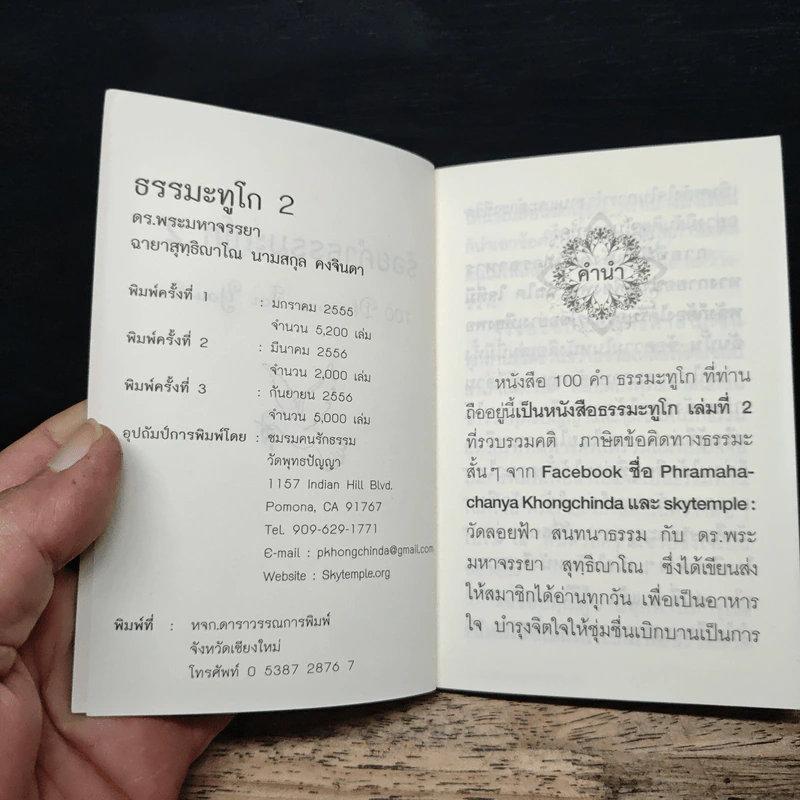 ธรรมะทูโก 2
ดร.พระมหาจรรยา
ฉายาสุทฺธิญาโณ นามสกุล คงจินดา
พิมพ์ครั้งที่ 1 : มกราคม 2555
จำนวน 5,200 เล่ม
พิมพ์ครั้งที่ 2 : มีนาคม 2556
จำนวน 2,000 เล่ม
พิมพ์ครั้งที่ 3 : กันยายน 2556
จำนวน 5,000 เล่ม
อุปถัมป์การพิมพ์โดย : ชมรมคนรักธรรม
วัดพุทธปัญญา
1157 Indian Hill Blvd.
Pomona, CA 91767
Tel. 909-629-1771
E-mail : pkhongchinda@gmail.com
Website : Skytemple.org
พิมพ์ที่ : หจก.ดาราวรรณการพิมพ์
จังหวัดเชียงใหม่
โทรศัพท์ 0 5387 2876 7
คำนำ
หนังสือ 100 คำ ธรรมะทูโก ที่ท่าน
ถืออยู่นี้เป็นหนังสือธรรมะทูโก เล่มที่ 2
ที่รวบรวมคติ ภาษิตข้อคิดทางธรรมะ
สั้นๆ จาก Facebook ชื่อ Phramaha-
chanya Khongchinda และ skytemple :
วัดลอยฟ้า สนทนาธรรม กับ ดร.พระ
มหาจรรยา สุทฺธิญาโณ ซึ่งได้เขียนส่ง
ให้สมาชิกได้อ่านทุกวัน เพื่อเป็นอาหาร
ใจ บำรุงจิตใจให้ชุ่มชื่นเบิกบานเป็นการ